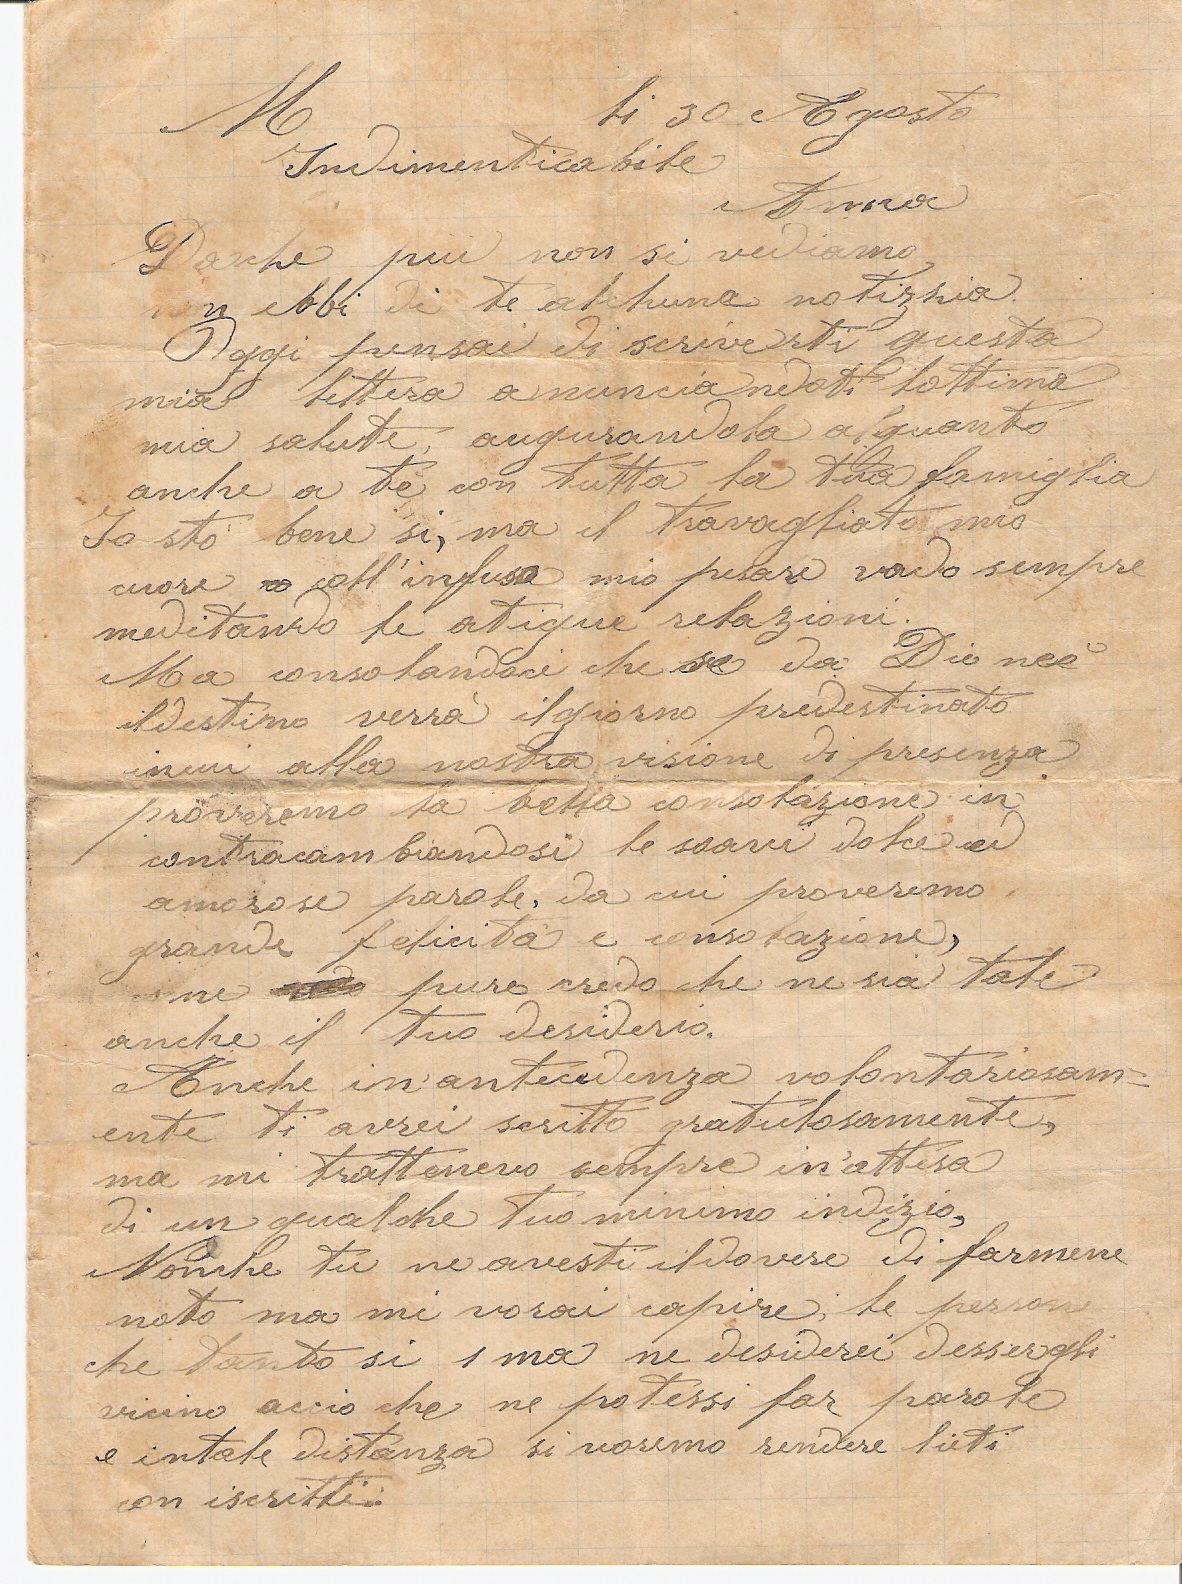 M li 30 Agosto
Indimenticabile
Anna
Darche più non si vediamo
non ebbi di te alchuna notizhia.
Oggi pensai di scriverti questa
mia lettera anunciandoti lottima
mia salute, augurandola alquanto
anche a te con tutta la tua famiglia
Io stò bene si, ma il travagliato mio
cuore coll'infuso mio pesare vado sempre
meditando le atique relazioni.
Ma consolandoci che se da Dio neè
ildestino verrà ilgiorno predestinato
incui alla nostra visione di presenza
proveremo la bella consolazione in
contracambiandosi le soavi dolce ed
amorose parole, da cui proveremo
grande felicità e consolazione,
come pure credo che ne sia tale
anche il tuo desiderio.
Anche in'antecedenza volontariosam=
ente ti avrei scritto gratulosamente,
ma mi trattenevo sempre in'attesa
di un qualche tuo minimo indizio,
Nonche tu ne avesti ildovere di farmene
noto ma mi vorai capire, le person
che tanto si ama ne desiderei desserghi
vicino acciò che ne potessi far parole
e intale distanza si voremo rendere lieti
con iscritti.